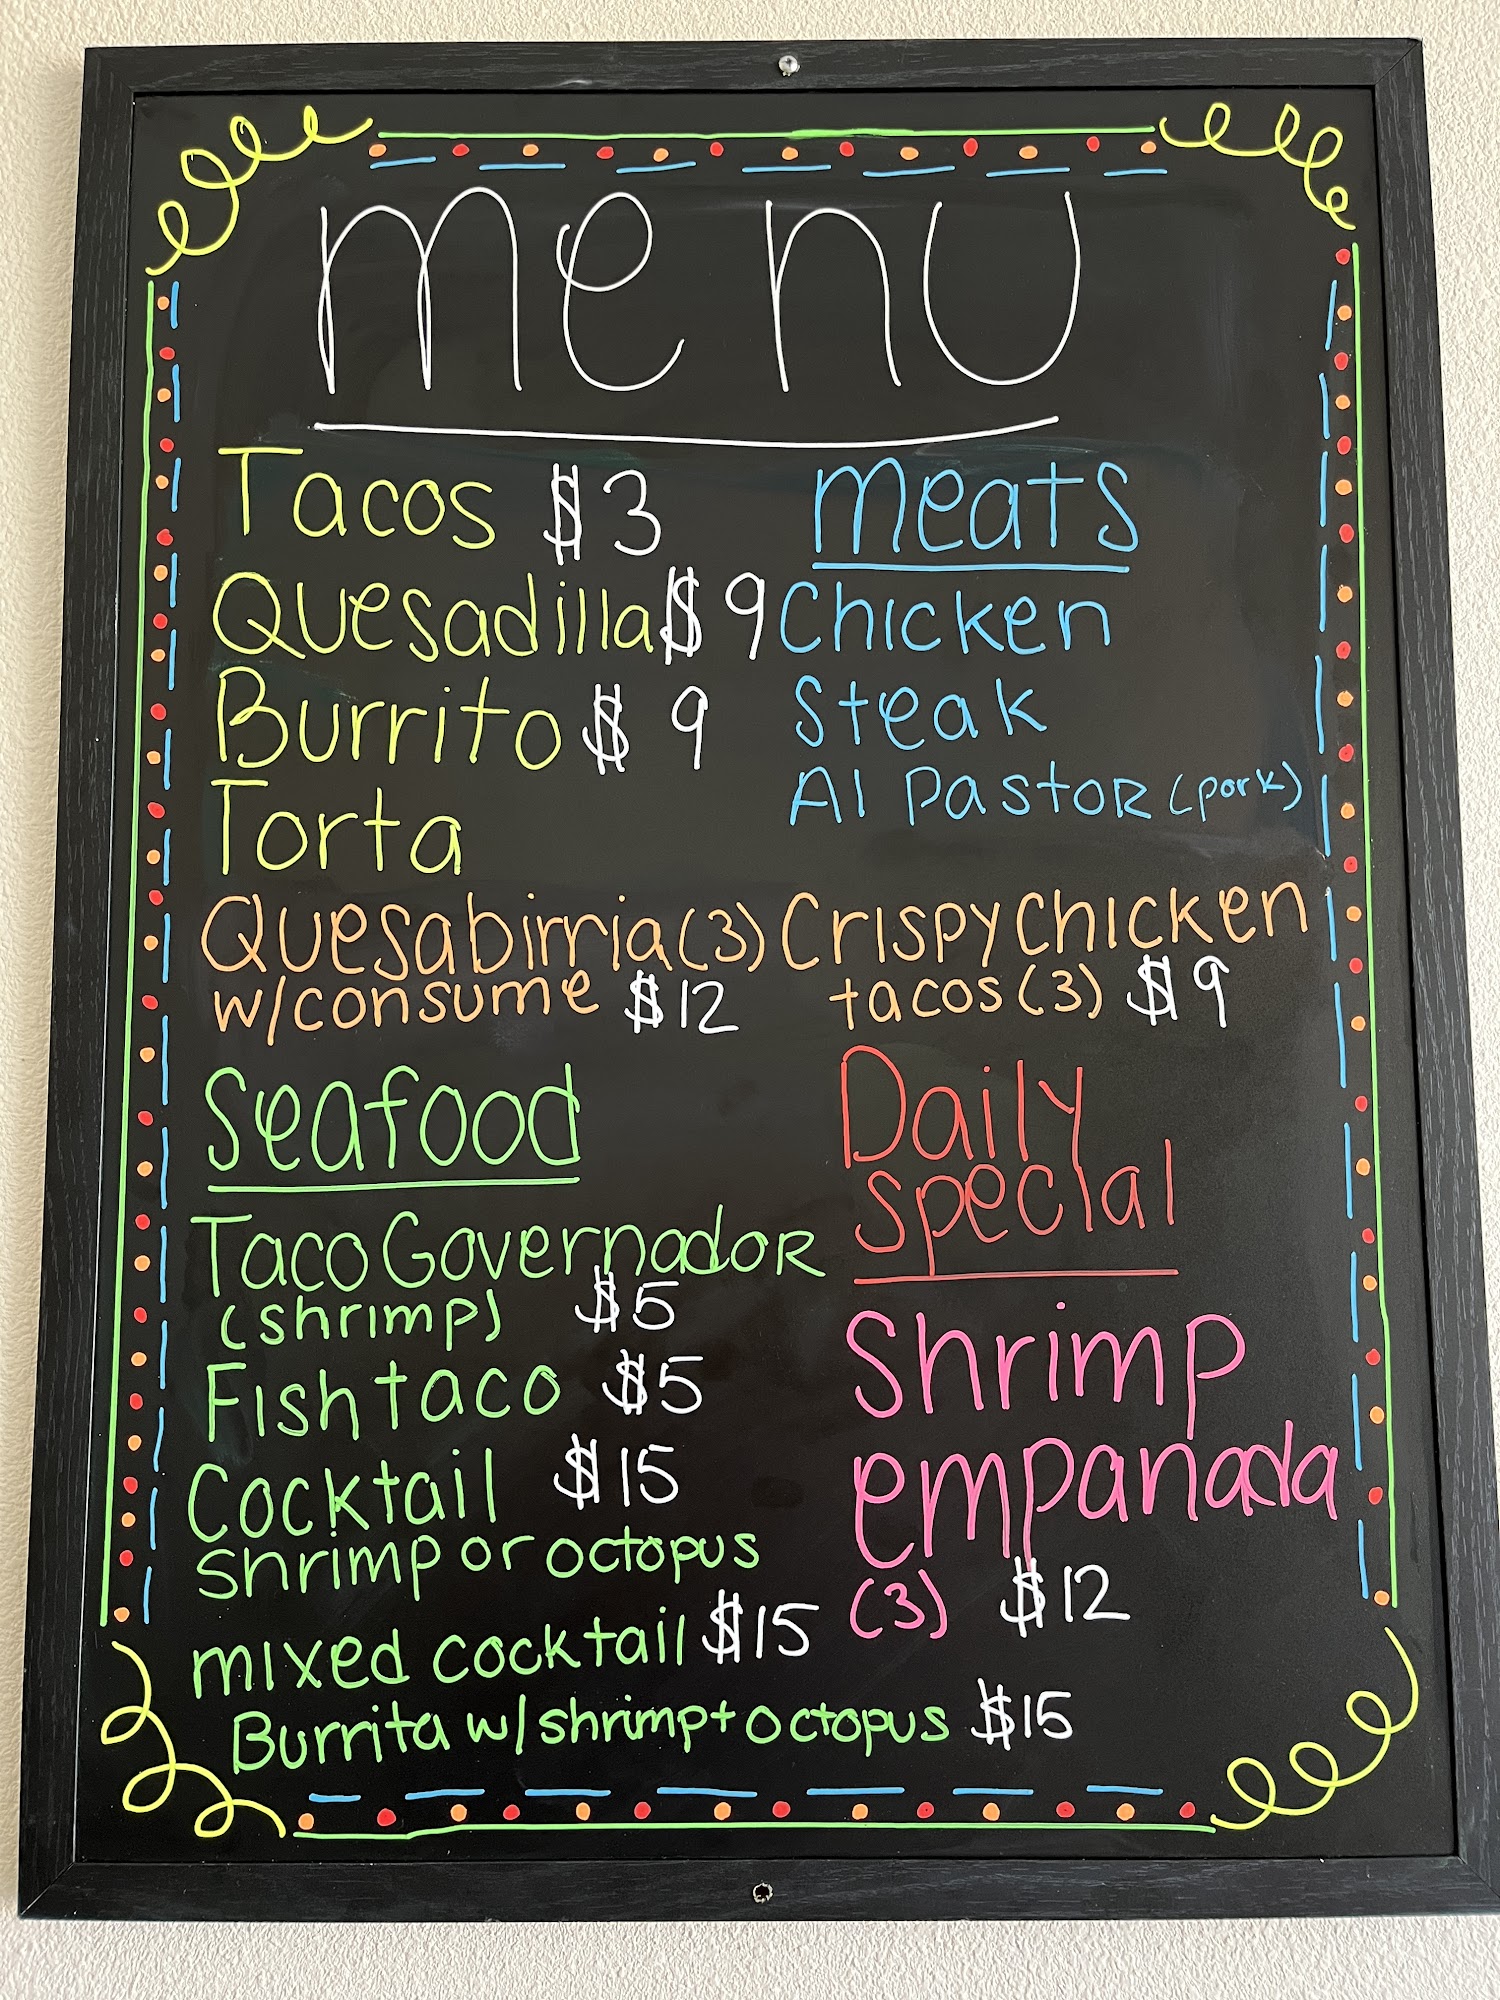 menu
Tacos $3
Quesadilla $9
Burrito $9
Torta
meats
Chicken
Steak
Al Pastor (pork)
Quesabirria (3)
w/consume $12
Crispy Chicken
tacos (3) $9
Seafood
Taco Governador
(shrimp) $5
Fish taco $5
Cocktail $15
shrimp or octopus
mixed cocktail $15
Burrita w/shrimp + octopus $15
Daily
special
Shrimp
empanada
(3) $12